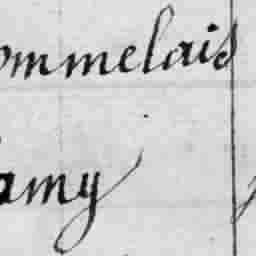 ommelais
amy